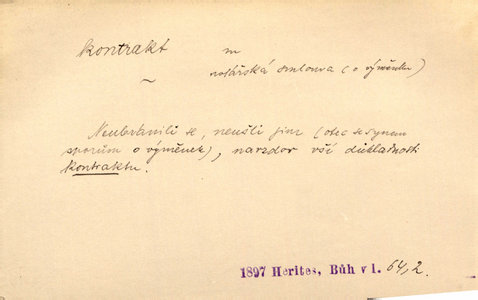 kontrakt m
~ notářská smlouva (o výměnku)
Neubránili se, neušli jim (otec se synem
sporům o výměnek), navzdor vší důkladnosti
kontraktu.
1897 Herites, Bůh v l. 64,2